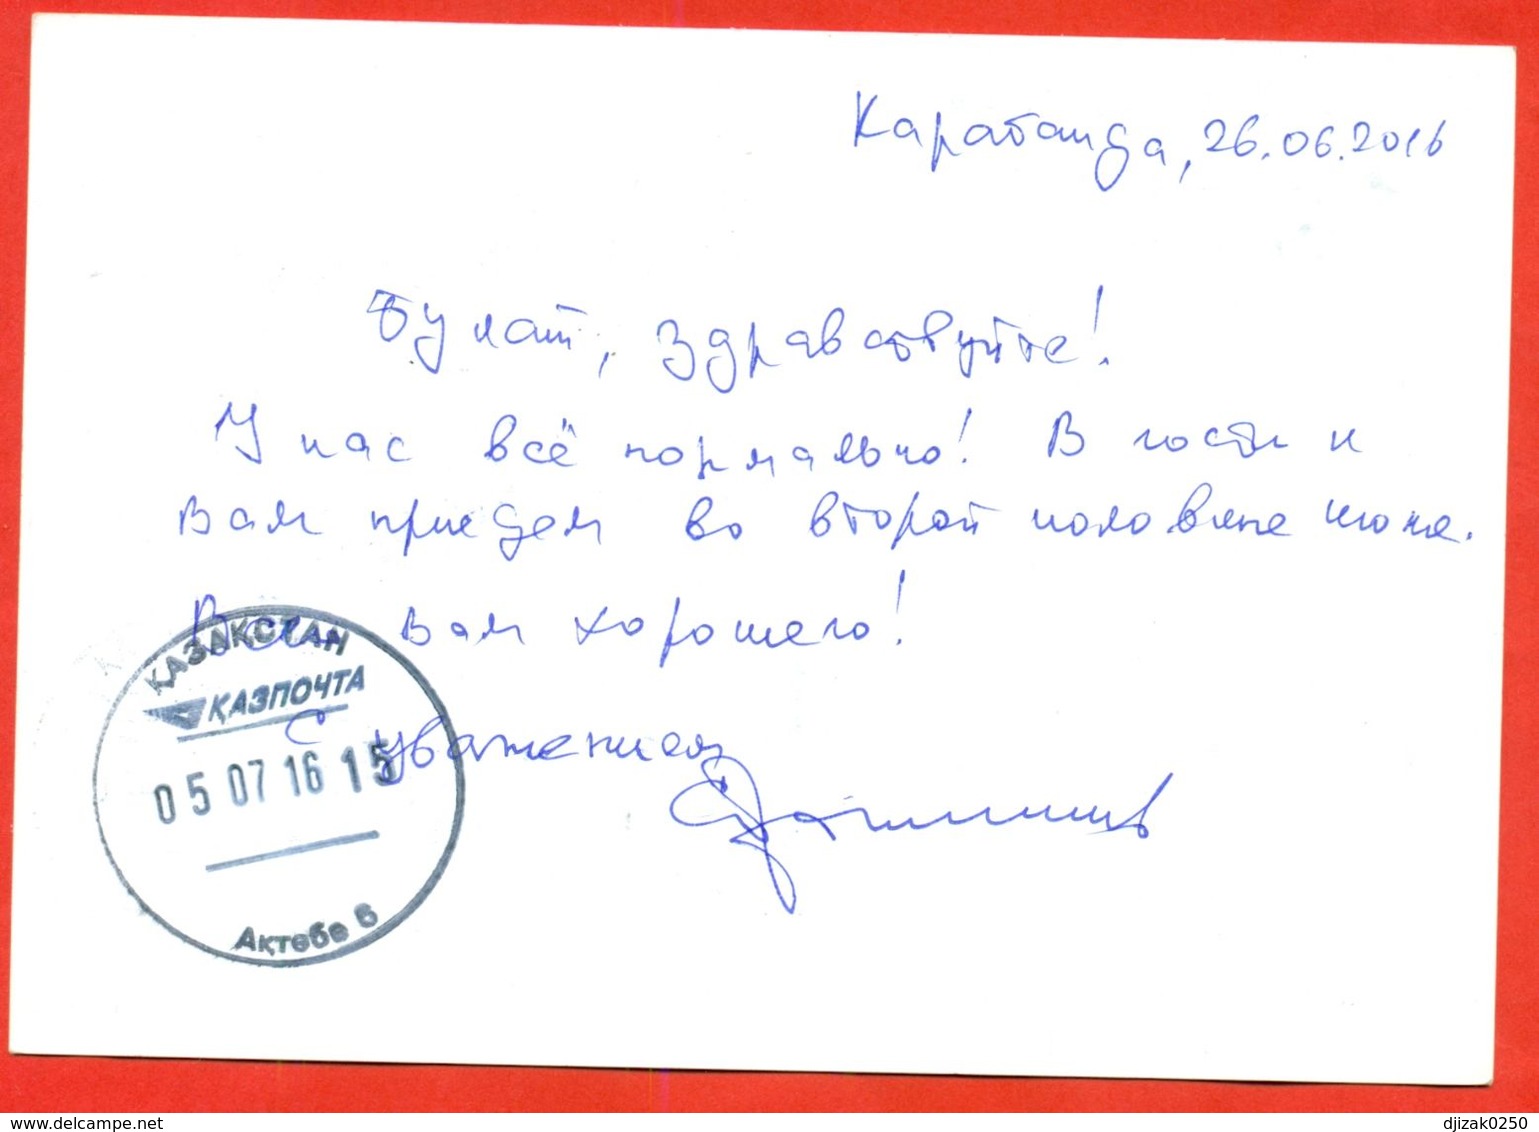 Караганда, 26.06.2016
Булат, здравствуйте!
У нас всё нормально! В гости к
Вам приедем во второй половине июля.
Всего Вам хорошего!
С уважением
ҚАЗАҚСТАН
ҚАЗПОЧТА
05 07 16 15
Ақтөбе 6
djizak0250